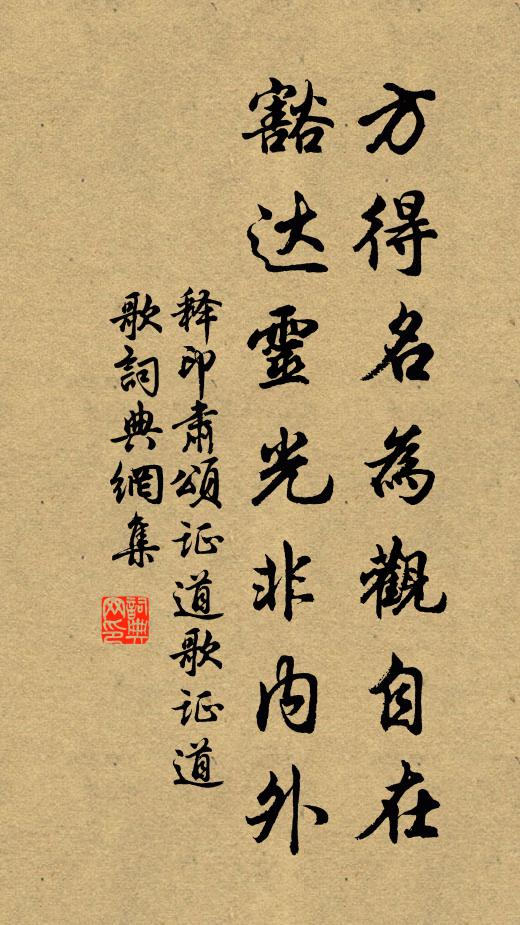 方得名為觀自在
豁达靈光非内外
释印肅頌证道歌证道
歌詞典網集
詞典
网印